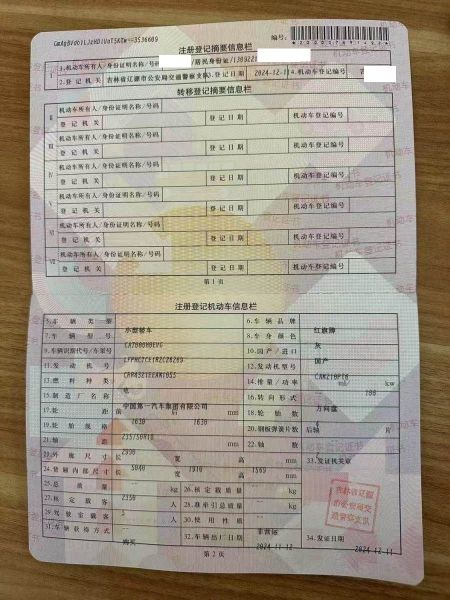 注册登记摘要信息栏
编号:
Ⅰ 1.机动车所有人/身份证明名称/号码 /居民身份证/
2.登记机关 吉林省辽源市公安局交通警察支队 3.登记日期 2024-12-11 4.机动车登记编号
转移登记摘要信息栏
Ⅱ 机动车所有人/身份证明名称/号码
登记机关 登记日期 机动车登记编号
Ⅲ 机动车所有人/身份证明名称/号码
登记机关 登记日期 机动车登记编号
Ⅳ 机动车所有人/身份证明名称/号码
登记机关 登记日期 机动车登记编号
Ⅴ 机动车所有人/身份证明名称/号码
登记机关 登记日期 机动车登记编号
Ⅵ 机动车所有人/身份证明名称/号码
登记机关 登记日期 机动车登记编号
Ⅶ 机动车所有人/身份证明名称/号码
登记机关 登记日期 机动车登记编号
第1页
注册登记机动车信息栏
5.车辆类型 小型轿车 6.车辆品牌 红旗牌
7.车辆型号 8.车身颜色 灰
9.车辆识别代号/车架号 10.国产/进口 国产
11.发动机号 12.发动机型号
13.燃料种类 电 14.排量/功率
15.制造厂名称 中国第一汽车集团有限公司 16.转向形式 方向盘
17.轮距 前 1630 后 1630 mm 18.轮胎数 4
19.轮胎规格 235/50R18 20.钢板弹簧片数 后轴 片
21.轴距 2990 mm 22.轴数 2
23.外廓尺寸 长 5040 宽 1910 高 1569 mm 33.发证机关章
24.货厢内部尺寸 长 宽 高 mm
25.总质量 2350 kg 26.核定载质量 kg
27.核定载客 5 人 28.准牵引总质量 kg
29.驾驶室载客 人 30.使用性质 非营运
31.车辆获得方式 购买 32.车辆出厂日期 2024-11-12 34.发证日期 2024-12-11
吉林省辽源市公安局交通警察支队
第2页